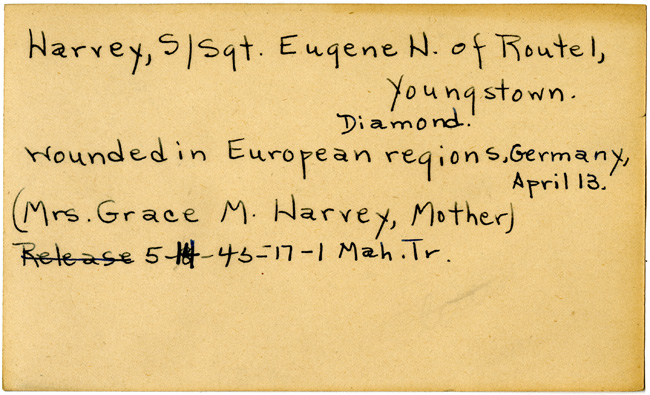 Harvey, S/Sgt. Eugene H. of Route 1,
Youngstown.
Diamond.
wounded in European regions, Germany,
April 13.
(Mrs. Grace M. Harvey, Mother)
Release 5- -45-17-1 Mah. Tr.